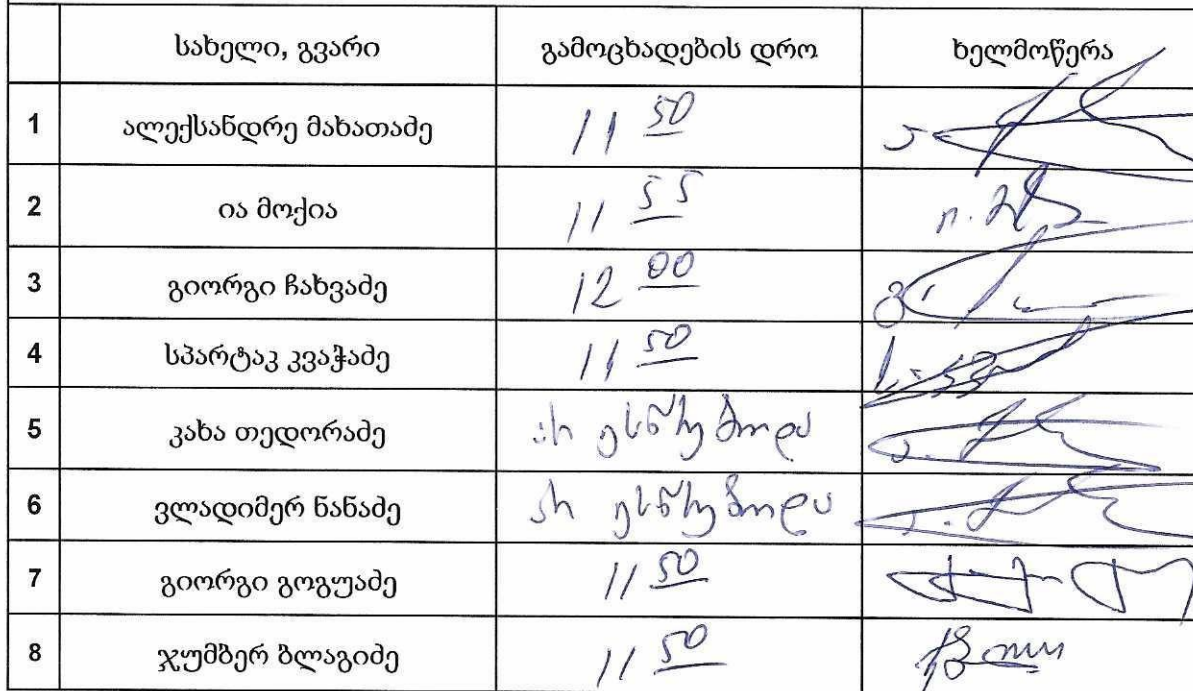 სახელი, გვარი გამოცხადების დრო ხელმოწერა
1 ალექსანდრე მახათაძე 11 50
2 ია მოქია 11 55
3 გიორგი ჩახვაძე 12 00
4 სპარტაკ კვაჭაძე 11 50
5 კახა თედორაძე არ ესწრებოდა
6 ვლადიმერ ნანაძე არ ესწრებოდა
7 გიორგი გოგუაძე 11 50
8 ჯუმბერ ბლაგიძე 11 50